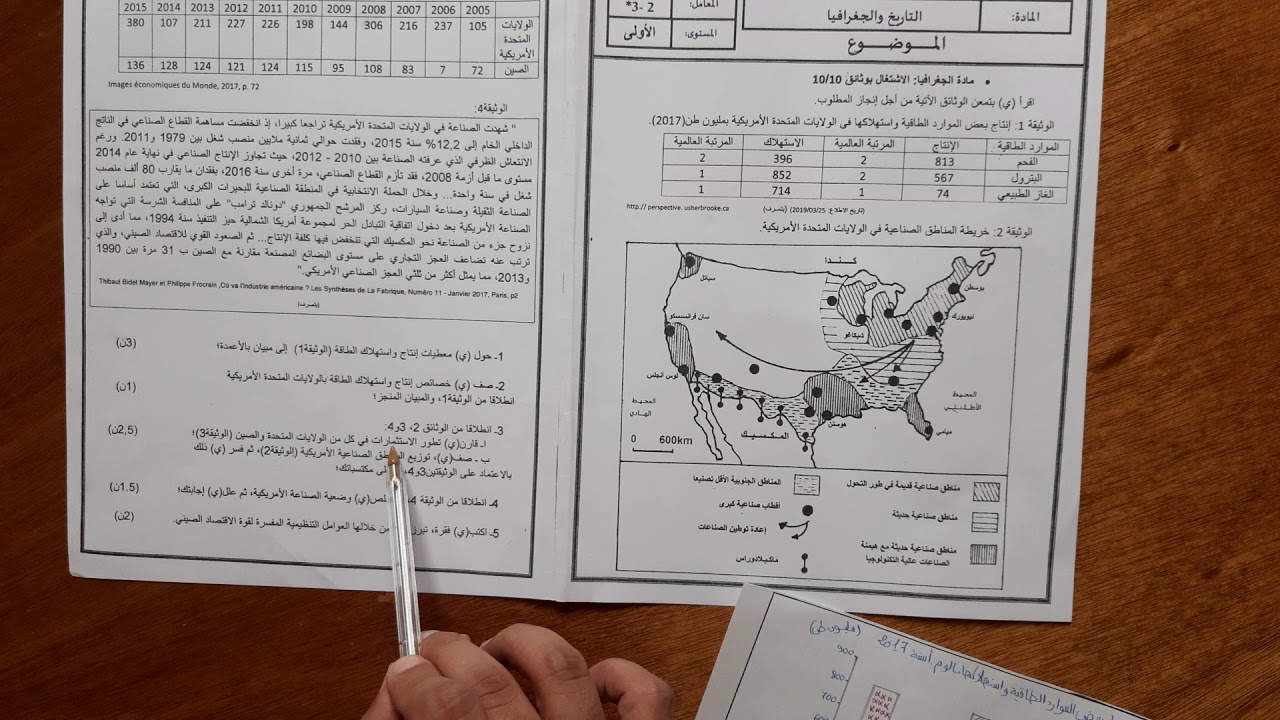 المادة:
التاريخ والجغرافيا
المعامل:
2 -3*
المستوى:
الأولى
الموضوع
• مادة الجغرافيا: الاشتغال بوثائق 10/10
اقرأ (ي) بتمعن الوثائق الآتية من أجل إنجاز المطلوب.
الوثيقة 1: إنتاج بعض الموارد الطاقية واستهلاكها في الولايات المتحدة الأمريكية بمليون طن(2017).
الموارد الطاقية الإنتاج المرتبة العالمية الاستهلاك المرتبة العالمية
الفحم 813 2 396 2
البترول 567 2 852 1
الغاز الطبيعي 74 1 714 1
(تاريخ الاطلاع: 2019/03/25) (بتصرف)
http:// perspective. usherbrooke.ca
الوثيقة 2: خريطة المناطق الصناعية في الولايات المتحدة الأمريكية.
كندا
سياتل
بوسطن
نيويورك
سان فرانسسكو
شيكاغو
لوس أنجلس
المحيط
الأطلنتي
المحيط
الهادي
ميامي
هوستن
المكسيك
0 600km
مناطق صناعية قديمة في طور التحول
مناطق صناعية حديثة
مناطق صناعية حديثة مع هيمنة
الصناعات عالية التكنولوجيا
المناطق الجنوبية الأقل تصنيعا
أقطاب صناعية كبرى
إعادة توطين الصناعات
ماكيلادوراس
2005 2006 2007 2008 2009 2010 2011 2012 2013 2014 2015
الولايات المتحدة الأمريكية 105 237 216 306 144 198 226 227 211 107 380
الصين 72 7 83 108 95 115 124 121 124 128 136
Images économiques du Monde, 2017, p. 72
الوثيقة4:
" شهدت الصناعة في الولايات المتحدة الأمريكية تراجعا كبيرا، إذ انخفضت مساهمة القطاع الصناعي في الناتج
الداخلي الخام إلى 12,2% سنة 2015، وفقدت حوالي ثمانية ملايين منصب شغل بين 1979 و2011. ورغم
الانتعاش الظرفي الذي عرفته الصناعة بين 2010 - 2012، حيث تجاوز الإنتاج الصناعي في نهاية عام 2014
مستوى ما قبل أزمة 2008، فقد تأزم القطاع الصناعي، مرة أخرى سنة 2016، بفقدان ما يقارب 80 ألف منصب
شغل في سنة واحدة... وخلال الحملة الانتخابية في المنطقة الصناعية للبحيرات الكبرى، التي تعتمد أساسا على
الصناعة الثقيلة وصناعة السيارات، ركز المرشح الجمهوري "دونالد ترامب" على المنافسة الشرسة التي تواجه
الصناعة الأمريكية بعد دخول اتفاقية التبادل الحر لمجموعة أمريكا الشمالية حيز التنفيذ سنة 1994، مما أدى إلى
نزوح جزء من الصناعة نحو المكسيك التي تنخفض فيها كلفة الإنتاج... ثم الصعود القوي للاقتصاد الصيني، والذي
ترتب عنه تضاعف العجز التجاري على مستوى البضائع المصنعة مقارنة مع الصين ب 31 مرة بين 1990
و2013، مما يمثل أكثر من ثلثي العجز الصناعي الأمريكي."
Thibaut Bidet Mayer et Philippe Frocrain ,Où va l'industrie américaine ? Les Synthèses de La Fabrique, Numéro 11 - Janvier 2017, Paris, p2
(بتصرف)
1- حول (ي) معطيات إنتاج واستهلاك الطاقة (الوثيقة1) إلى مبيان بالأعمدة؛ (3ن)
2- صف (ي) خصائص إنتاج واستهلاك الطاقة بالولايات المتحدة الأمريكية
انطلاقا من الوثيقة1، والمبيان المنجز؛ (1ن)
3- انطلاقا من الوثائق 2، 3و4:
أ- قارن(ي) تطور الاستثمارات في كل من الولايات المتحدة والصين (الوثيقة3)؛ (2,5ن)
ب - صف(ي)، توزيع الصناعية الأمريكية (الوثيقة2)، ثم فسر (ي) ذلك
بالاعتماد على الوثيقتين3و4، مكتسباتك؛
4- انطلاقا من الوثيقة 4 وضعية الصناعة الأمريكية، ثم علل(ي) إجابتك؛ (1.5ن)
5- اكتب(ي) فقرة، تبرز خلالها العوامل التنظيمية المفسرة لقوة الاقتصاد الصيني. (2ن)
الموارد الطاقية واستهلاكها بالوم.أ سنة 2017 (مليون طن)
900
800
700
600